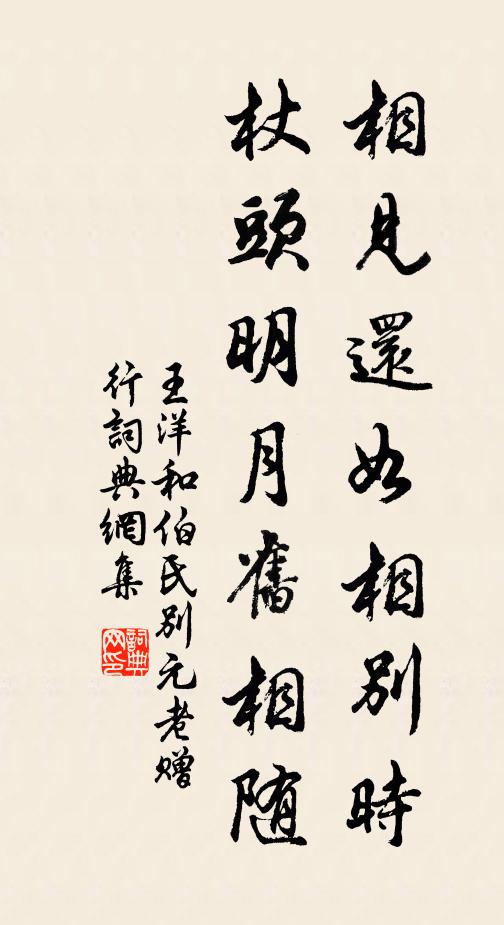 相見還如相別時
杖頭明月舊相随
王洋和伯氏別元老贈
行詞典網集
詞典网印